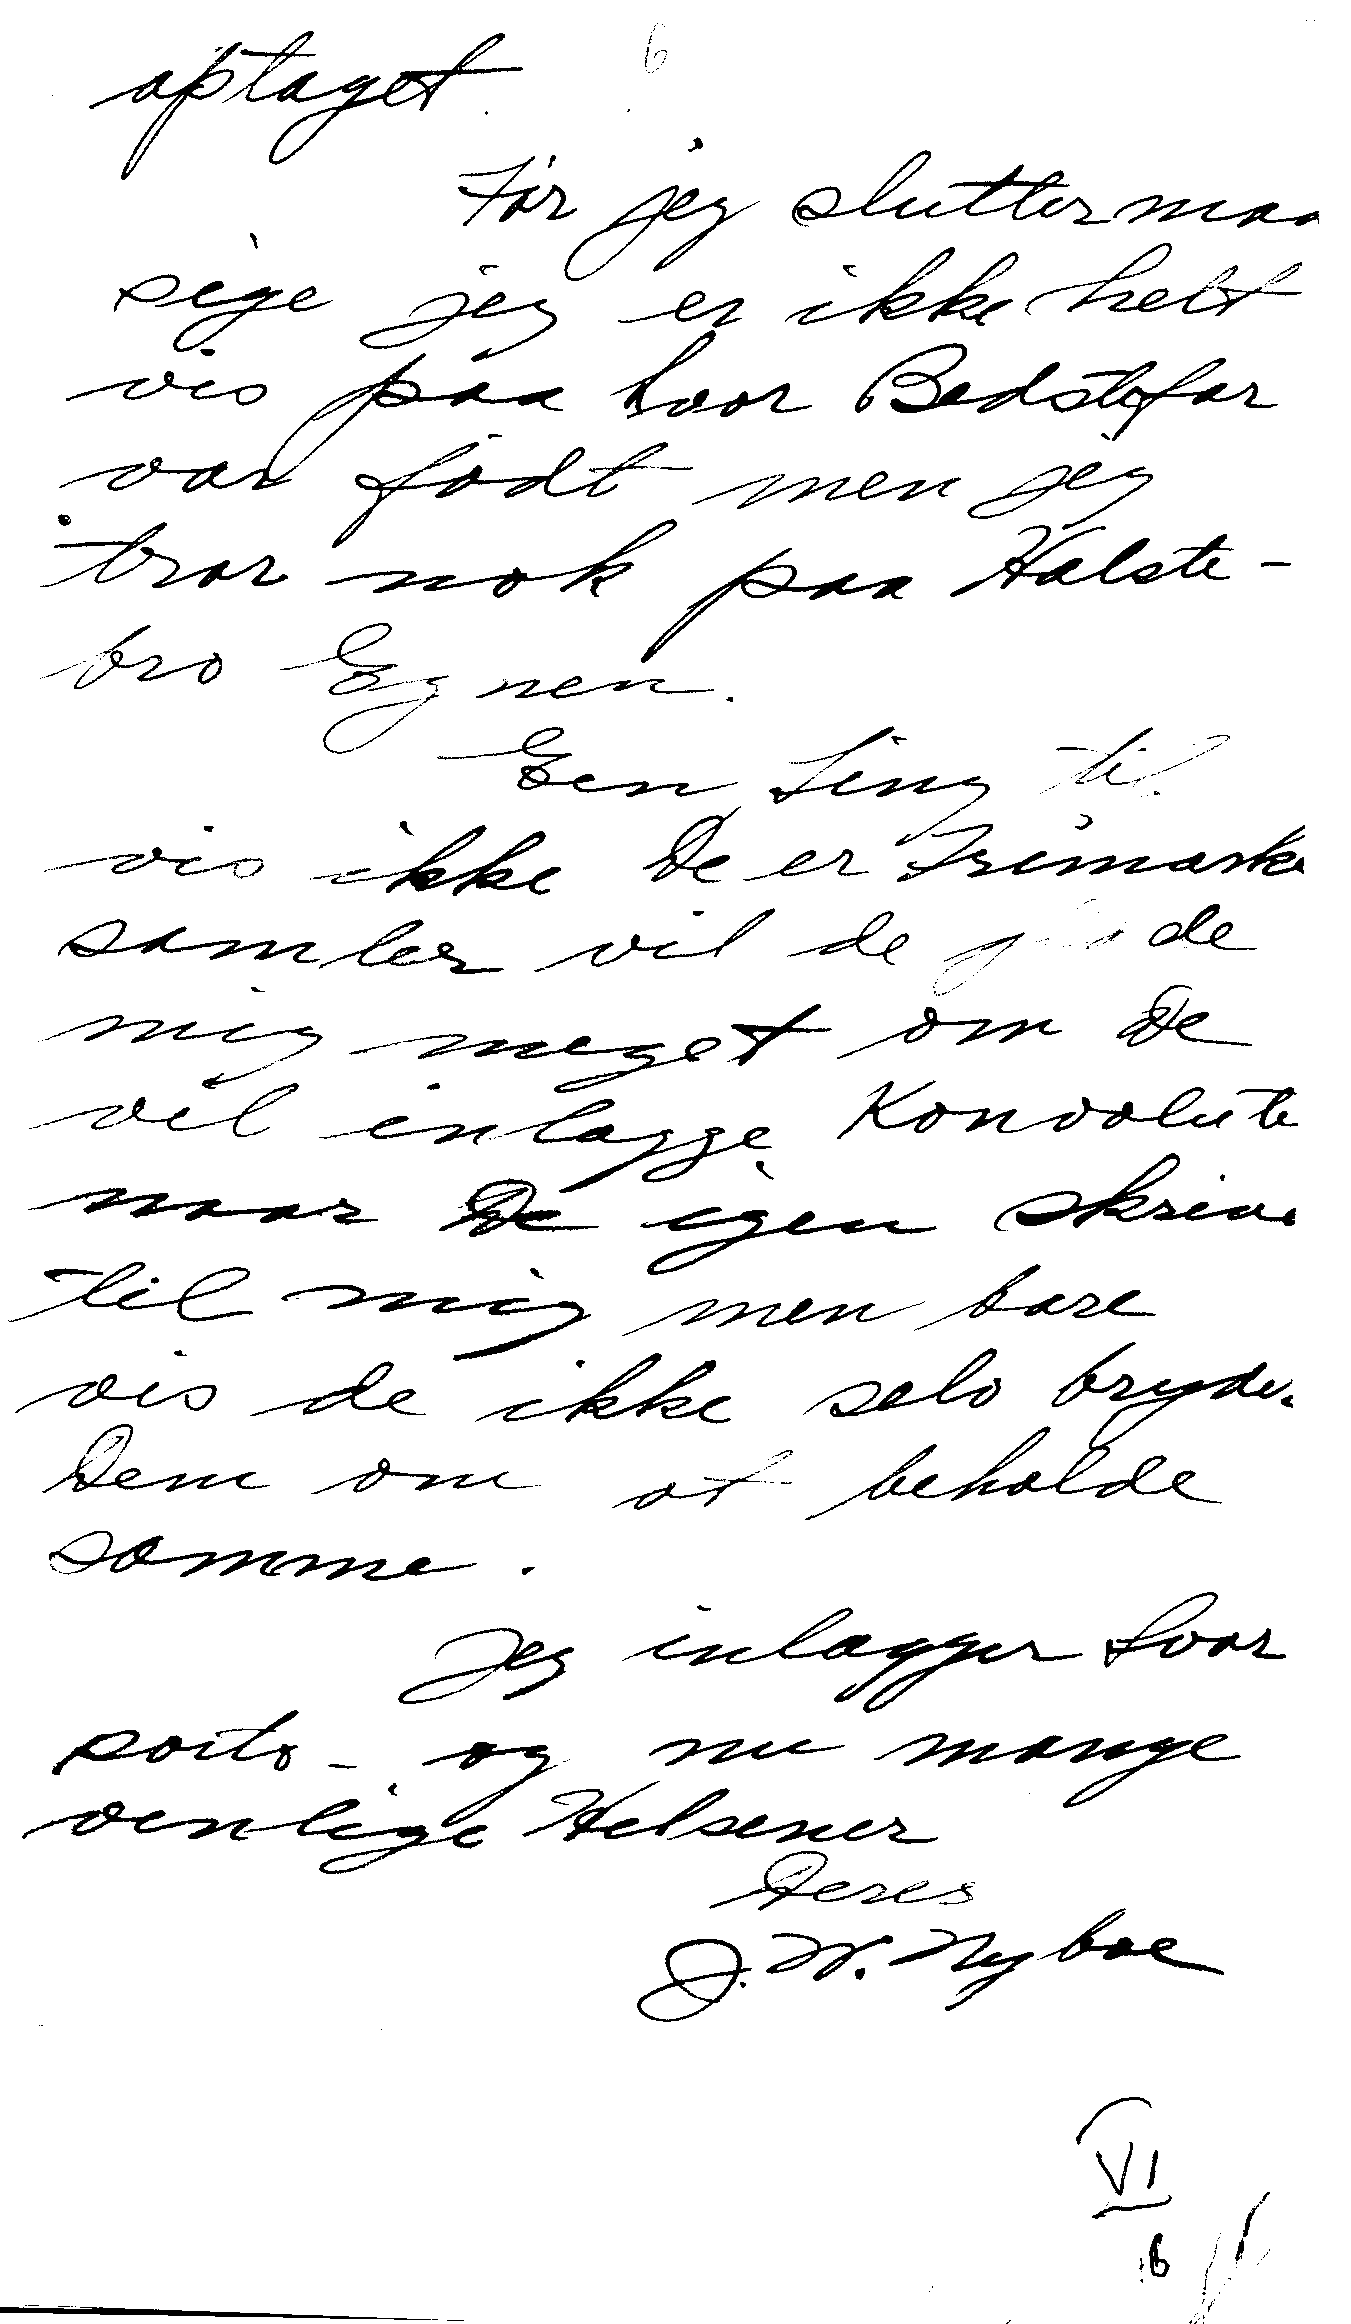 6
optaget
Før jeg slutter maa
sige jeg er ikke helt
vis paa hvor Bedstefar
var født men jeg
tror nok paa Holste-
bro Egnen.
Een Ting til.
vis ikke De er Frimærke
samler vil de glæde
mig meget om De
vil inlægge Konvolute
naar De igen skrive
til mig men bare
vis de ikke selv bryder
Dem om at beholde
samme.
Jeg inlægger Svar
porto - og nu mange
venlige Helsener
Deres
J. W. Nyboe
VI
6